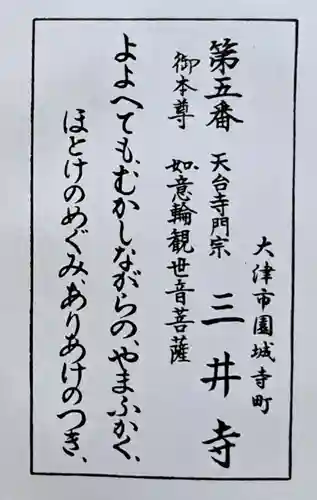 大津市園城寺町
第五番　天台寺門宗　三井寺
御本尊　如意輪観世音菩薩
よよへても、むかしながらの、やまふかく、
ほとけのめぐみ、ありあけのつき、